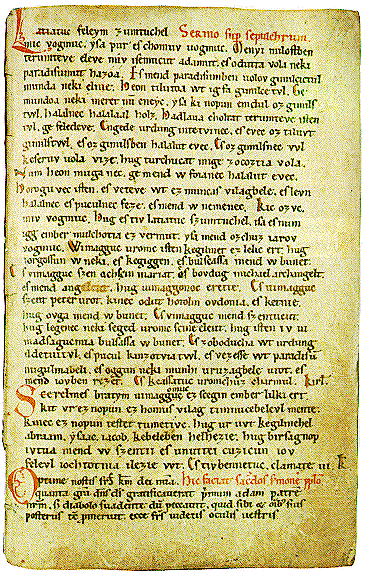 Latiatuc feleym zumtuchel Sermo sup sepulchrum.
mic vogmuc. yſa pur eſ chomuv uogmuc. Menyi miloſtben
terumteve eleve miv iſemucut adamut. eſ odutta vola neki
paradiſumut hazoa. Eſ mend paradiſumben uolov gimilcictul
munda neki elnie. Heon tilutoa wt ig fa gimilce tvl. Ge
mundoa neki meret nū eneyc. yſa ki nopun emdul oz gimilſ
tvl. halalnec halalaal holz. Hadlaua choltat terumteve iſten
tvl. ge feledeve. Engede urdung intetvinec. eſ evec oz tiluvt
gimilſtvl. eſ oz gimilſben halalut evec. Eſ oz gimilſnec vvl
keſeruv uola vize. hug turchucat mige zocoztia vola.
Num heon muga nec. ge mend w foianec halalut evec.
Horogu vec iſten. eſ veteve wt ez muncaſ vilagbele. eſ levn
halalnec eſ puculnec feze. eſ mend w nemenec. Kic oz vc.
miv vogmuc. Hug eſ tiv latiatuc ſzumtuchel. iſa eſ num
igg ember mulchotia ez vermut. yſa mend ozchuz iarov
vogmuc. Wimagguc uromc iſten kegilmet ez lelic ert. hug
iorgoſſun w neki. eſ kegiggen. eſ bulſassa mend w bunet.
Eſ vimagguc ſzen achſcin mariat. eſ bovdug michael archangelt.
eſ mend angelcut. hug uimaggonoc erette. Eſ uimagguc
ſzent peter urot. kinec odut hotolm ovdonia. eſ ketnie.
hug ovga mend w bunet. Eſ vimagguc mend ſzentucut.
hug legenec neki seged uromc ſcine eleut. hug iſten iv ui
madſagucmia bulſassa w bunet. Eſ zoboducha wt urdung
ildetuitvl. eſ pucul kinzotviatvl. eſ vezeſſe wt paradiſū
nugulmabeli. eſ oggun neki munhi uruzagbele utot. eſ
mend iovben rezet. Eſ keaſſatuc uromchuz charmul. Kirl.
Scerelmeſ bratym uimagguc omuc ez ſcegin ember lilki ert.
kit vr ez nopun ez homuſ vilag timnucebelevl mente.
kinec ez nopun teſtet tumetivc. hug ur uvt kegilmehel
abraam. yſaac. iacob. kebeleben helhezie. hug birſagnop
ivtua mend w ſzentii eſ unuttei cuzicun iov
felevl iochtotnia ilezie wt. Eſ tiv bennetuc. clamate iii. K.